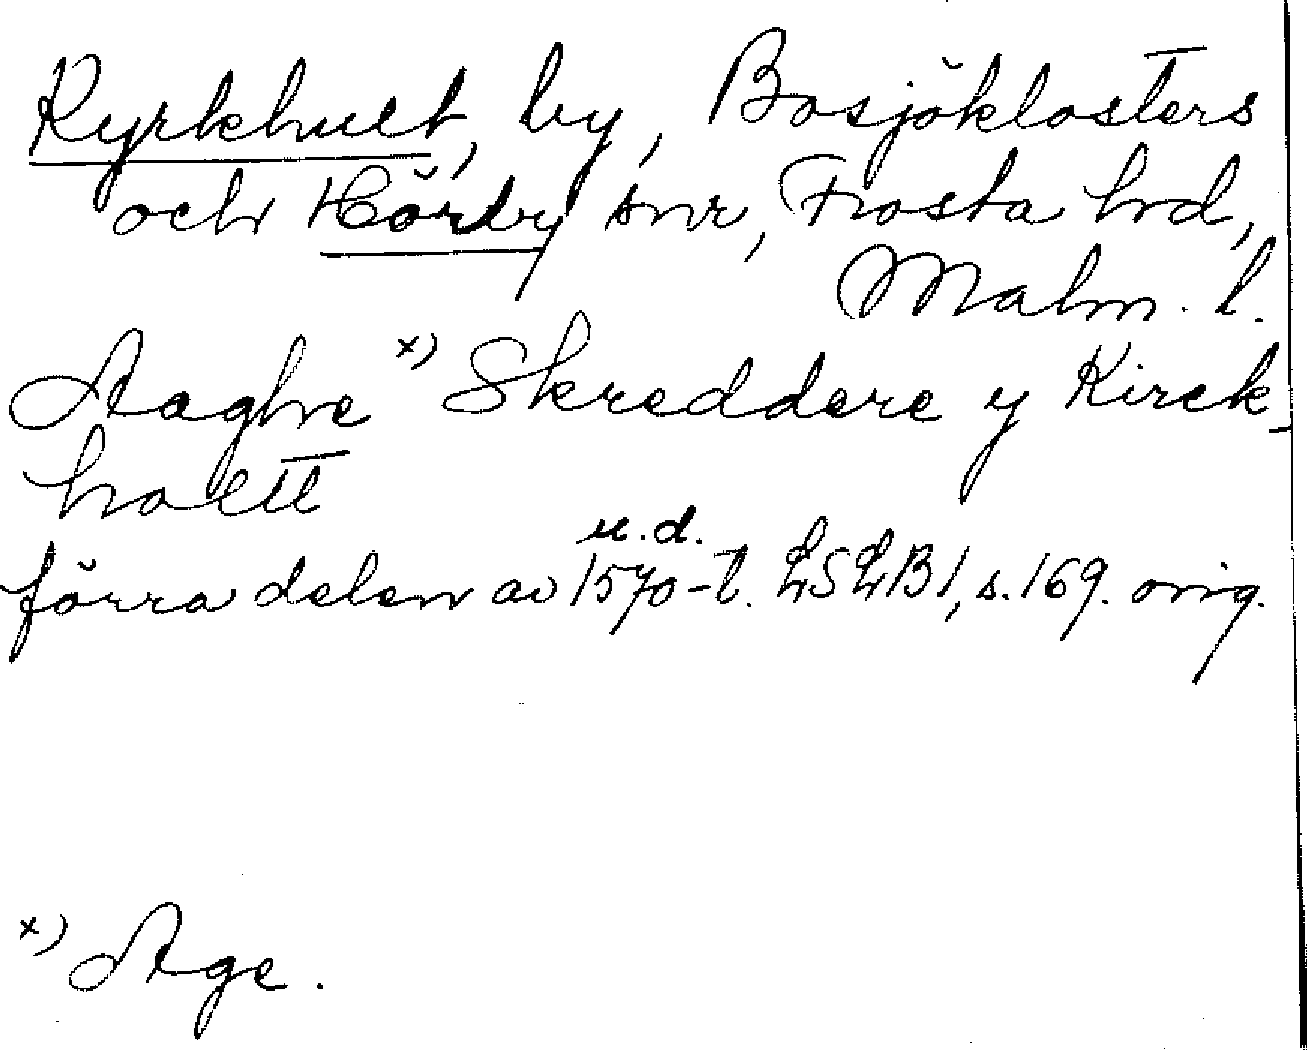 Kyrkhult, by, Bosjöklosters
och Hörby snr, Frosta hd,
Malm. l.
Aaghe x) Skreddere y Kirck-
holtt
u.d.
förra delen av 1570-t. LSLB1, s. 169. orig.
x) Age.